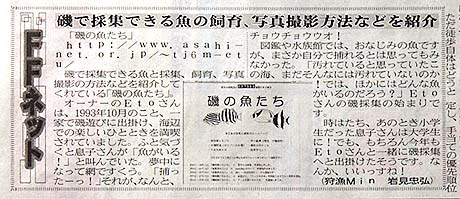 磯で採集できる魚の飼育、写真撮影方法などを紹介
FFネット
「磯の魚たち」
http://www.asahi-
net.or.jp/~tj6m-et
u/
磯で採集できる魚と採集、飼育、写真
撮影の方法などを紹介して
くれている「磯の魚たち」。
オーナーのEtoさん
は、1993年10月のこと、一
家で磯遊びに出掛け、海辺
での楽しいひとときを満喫
されていました。ふと気づ
くと息子さんが「魚がいる
!」と叫んでいた。夢中に
なって網ですくう。「捕っ
たーっ!」それが、なんと、
磯の魚たち
チョウチョウウオ!
図鑑や水族館では、おなじみの魚です
が、まさか自分で捕れるとは思ってもみ
なかった。「汚れていると思っていたこ
の海、まだそんなには汚れていないのか
!では、ほかにはどんな魚
がいるのだろう?」Eto
さんの磯採集の始まりで
す。
時はたち、あのとき小学
生だった息子さんは大学生
に!でも、もちろん今年も
Etoさんと一緒に磯採集
へと出掛けたそうです。な
んか、いいっすね!
(狩漁Min 岩見忠弘)
ただ徒歩自体はどうっ
定し、手当ての優先順位